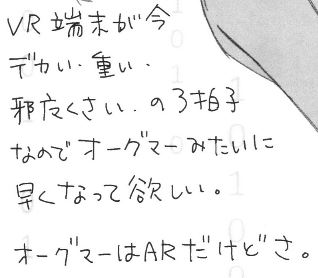 VR端末が今
デカい・重い・
邪魔くさい・の3拍子
なのでオーグマーみたいに
早くなって欲しい。
オーグマーはARだけどさ。